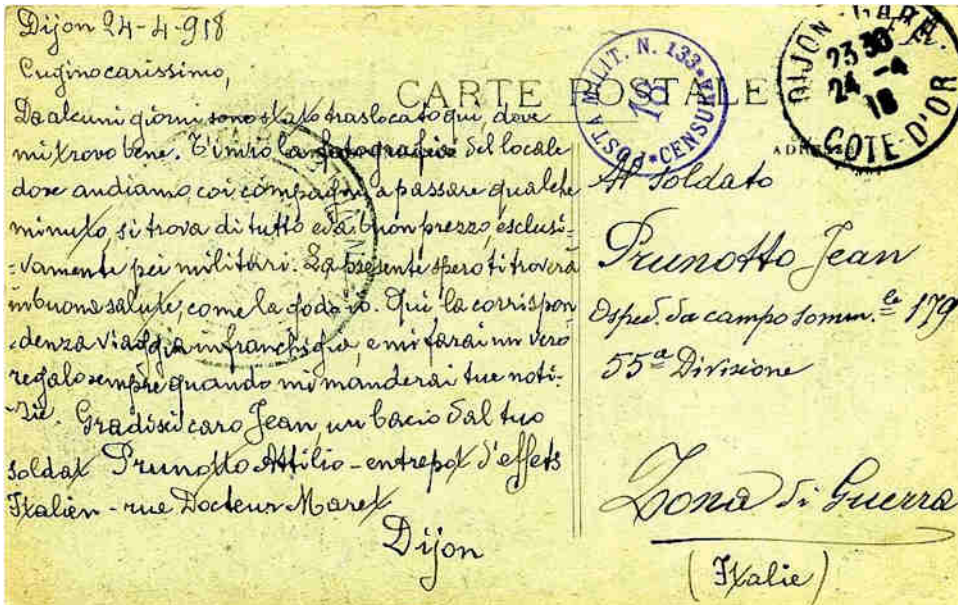 Dijon 24-4-918
Cugino carissimo,
Da alcuni giorni sono stato traslocato qui, dove
mi trovo bene. T'invio la fotografia del locale
dove andiamo coi compagni a passare qualche
minuto, si trova di tutto e a buon prezzo, esclusi-
-vamente pei militari. La presente spero ti troverà
in buona salute, come la godo io. Qui la corrispon
-denza viaggia in franchigia, e mi farai un vero
regalo sempre quando mi manderai tue noti-
-zie. Gradisci caro Jean, un bacio dal tuo
soldat Prunotto Attilio - entrepot d'effets
Italien - rue Docteur Maret
Dijon
CARTE POSTALE
POSTA MILIT. N. 133 * CENSURA *
18
DIJON - GARE
23 30
24 -4
18
COTE-D'OR
ADRESSE
Al Soldato
Prunotto Jean
Osped. da campo somm.le 179
55a Divisione
Zona di Guerra
(Italie)